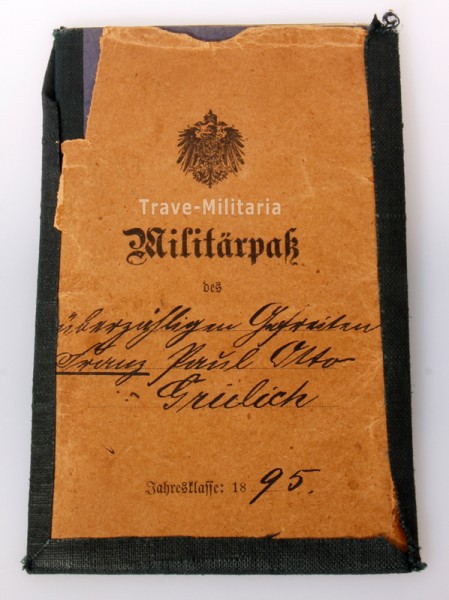 Trave-Militaria
Militärpaß
des
überzähligen Gefreiten
Franz Paul Otto
Greulich
Jahresklasse: 1895.